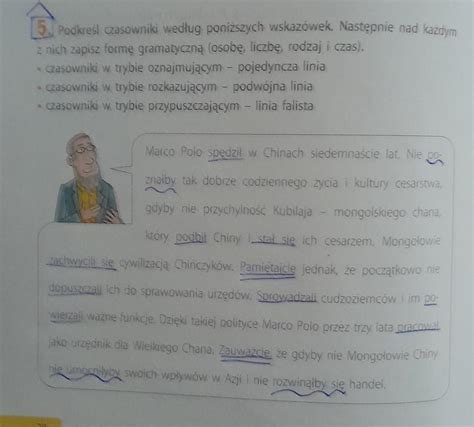 5. Podkreśl czasowniki według poniższych wskazówek. Następnie nad każdym
z nich zapisz formę gramatyczną (osobę, liczbę, rodzaj i czas).
• czasowniki w trybie oznajmującym – pojedyncza linia
• czasowniki w trybie rozkazującym – podwójna linia
• czasowniki w trybie przypuszczającym – linia falista
Marco Polo spędził w Chinach siedemnaście lat. Nie po-
znałby tak dobrze codziennego życia i kultury cesarstwa,
gdyby nie przychylność Kubilaja – mongolskiego chana,
który podbił Chiny i stał się ich cesarzem. Mongołowie
zachwycili się cywilizacją Chińczyków. Pamiętajcie jednak, że początkowo nie
dopuszczali ich do sprawowania urzędów. Sprowadzali cudzoziemców i im po-
wierzali ważne funkcje. Dzięki takiej polityce Marco Polo przez trzy lata pracował
jako urzędnik dla Wielkiego Chana. Zauważcie, że gdyby nie Mongołowie Chiny
nie umocniłyby swoich wpływów w Azji i nie rozwinąłby się handel.